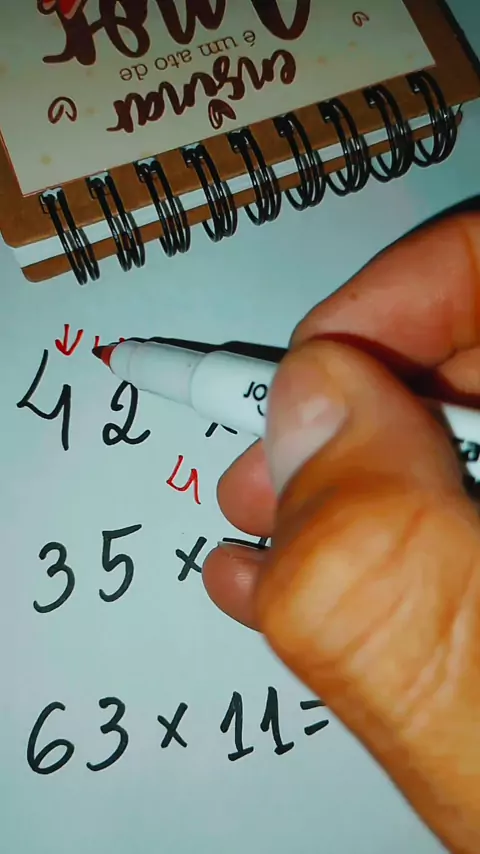 Amor
é um ato de
ensinar
42 ×
4
35 ×
63 × 11 =